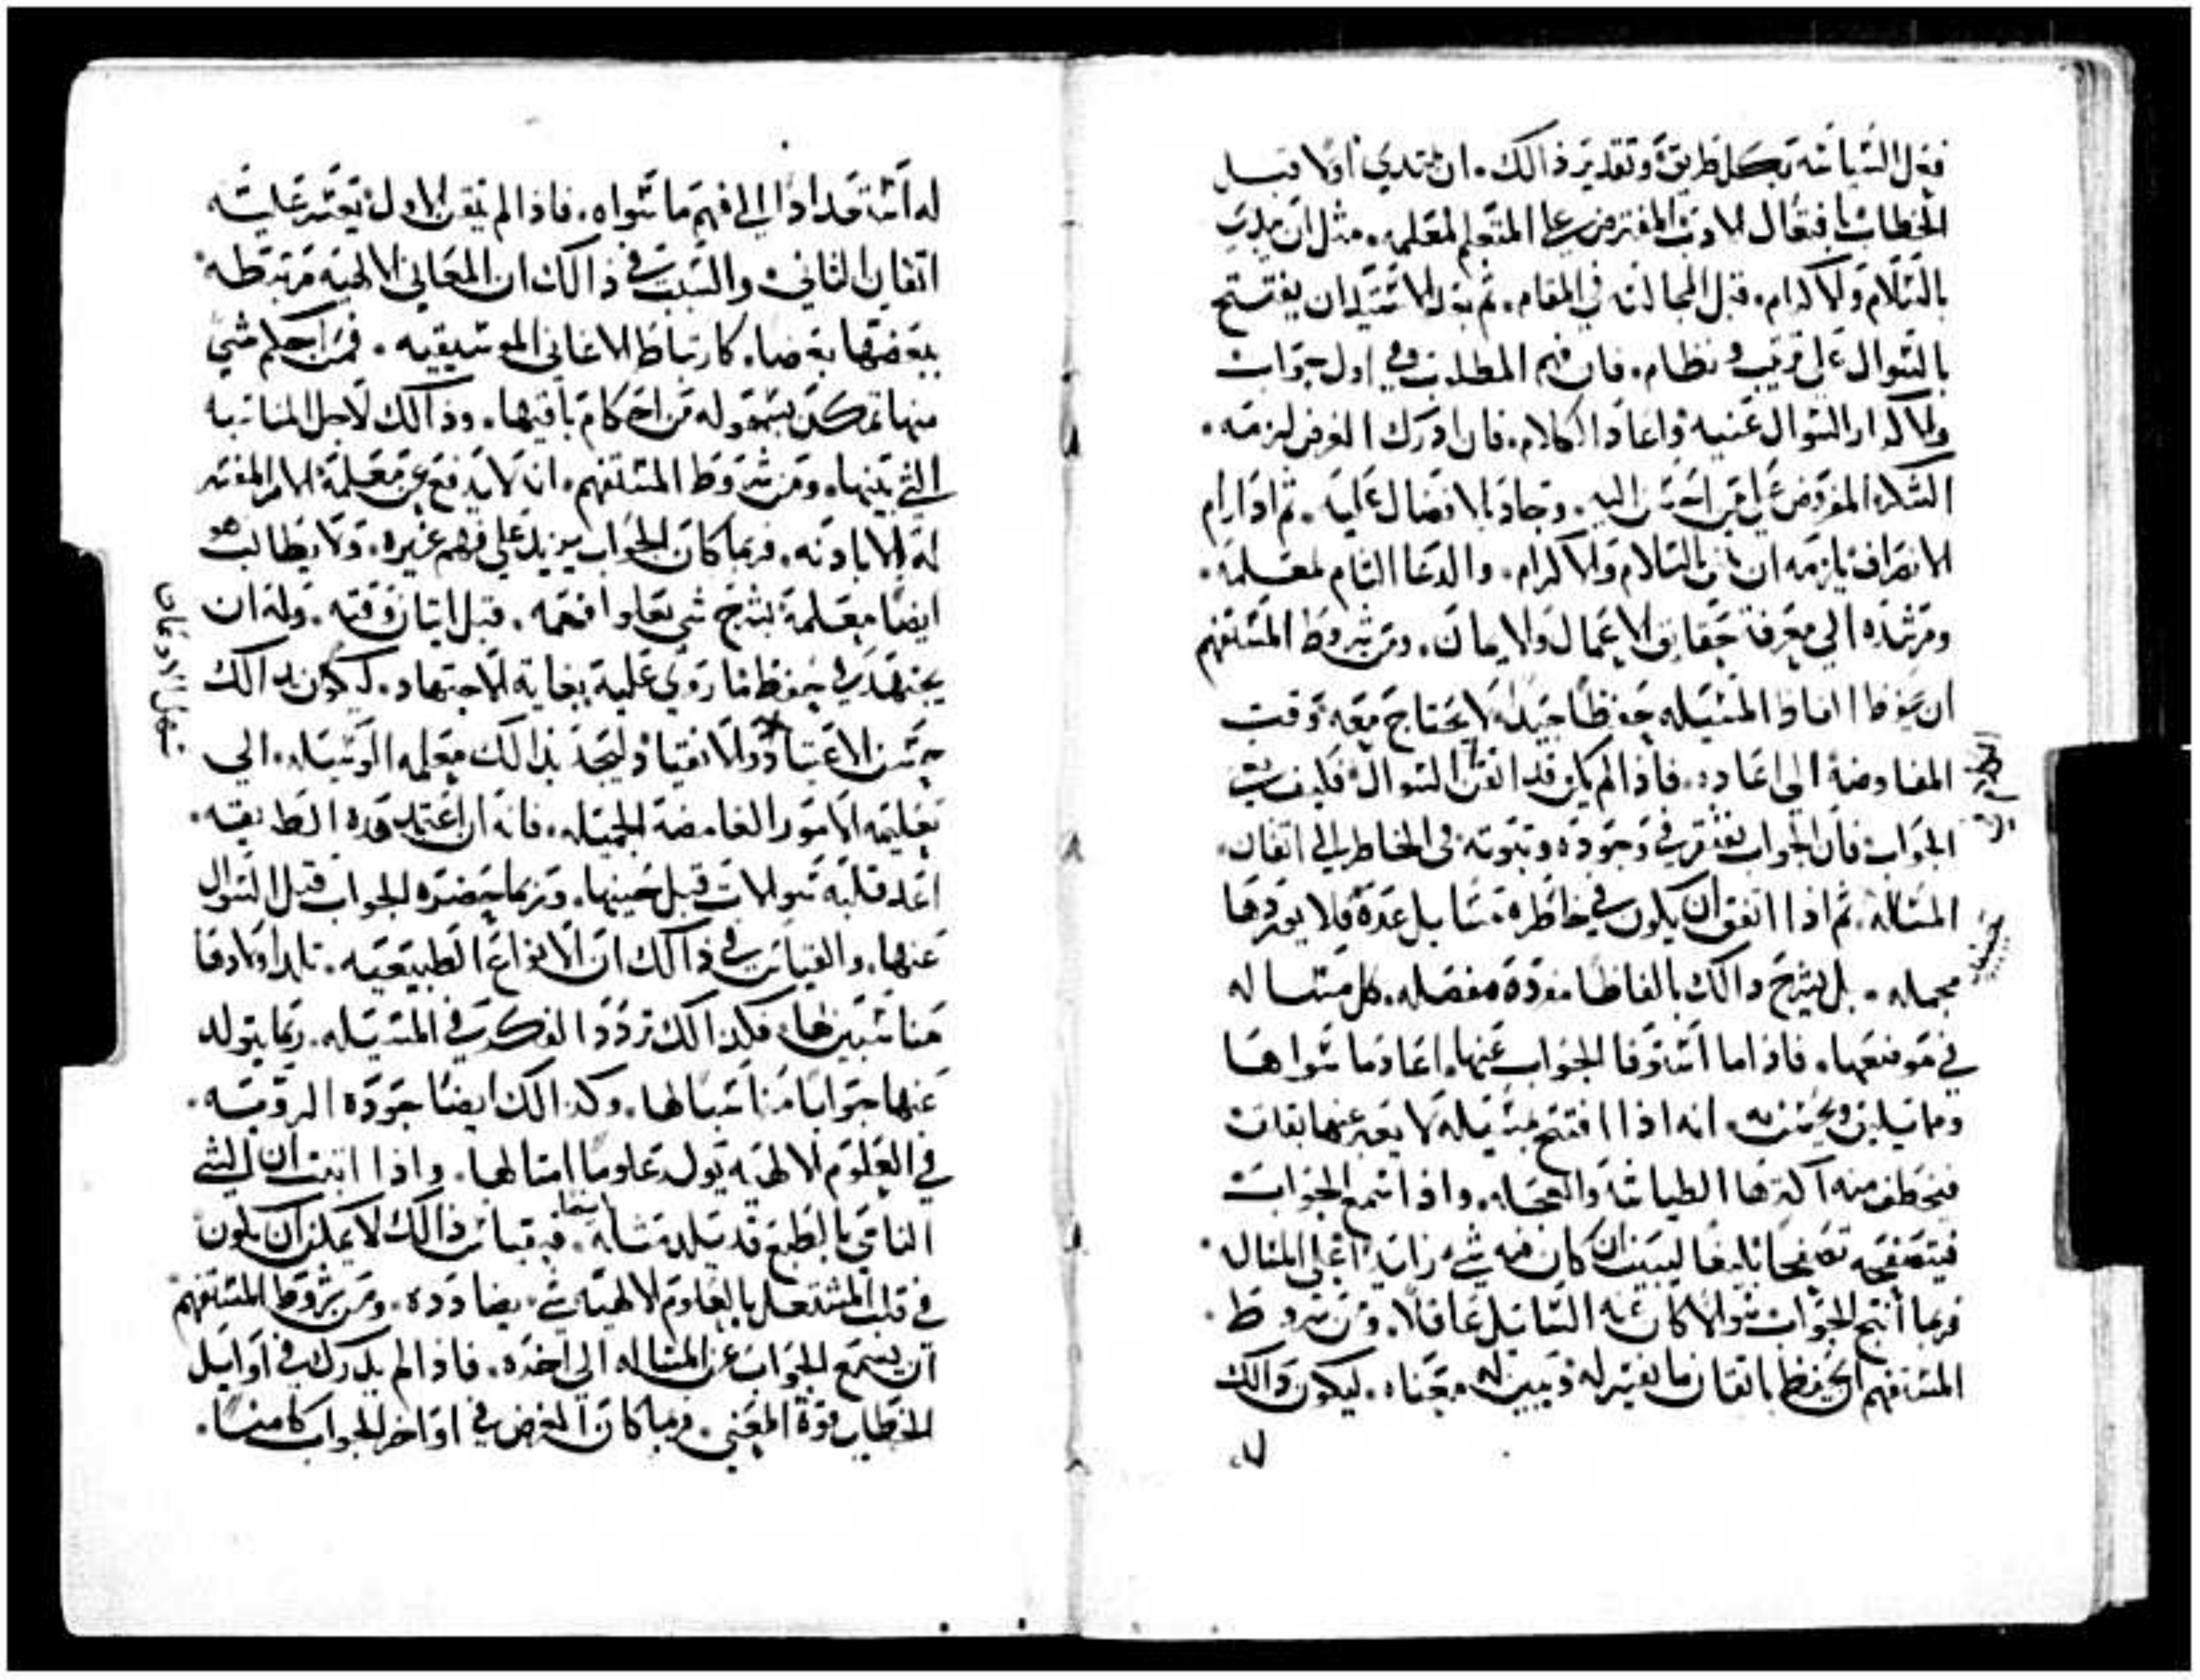 بكل طريق وتقدير ذالك. ان يبتدي اولا قبل
الخطاب بافتعال الادب المفترض على المتعلم لمعلمه. مثل ان
بالسلام والاكرام. قبل المجالسه في المقام. ثم ان يفتتح
بالسوال على ترتيب ونظام. فان فهم المطلوب في اول جواب
والا كرر السوال عنيه واعاد الكلام. فان ادرك الغرض لزمه.
الشكر المفروض على من احسن اليه. وجاد بالافضال عليه. ثم اذا رام
الانصراف يلزمه ان بالسلام والاكرام. والدعا التام لمعلمه.
ومرشده الي معرفة حقايق الاعمال والايمان. ومن شروط المستفهم
ان يحفظ المسيله حفظا جيدا لا يحتاج معه وقت
المفاوضة الي اعاده. فاذا لم يكن قد اتقن السوال
الجواب فان الجواب يفتقر في وجوده وثبوته في الخاطر الى اتقان
المساله. ثم اذا اتفق ان يكون في خاطره مسايل عدة فلا يوردها
مجمله. بل يشرح ذالك بالفاظ مفردة مفصله. كل مسساله
في موضعها. فاذا ما استوفا الجواب عنها. اعاد ما سواها
ومما يليق ويحسن به. انه اذا افتتح بمسيله لا يعبر عنها بغات
الطياشه والعجله. واذا سمع الجواب
فيتصفحه تصفحا بليغا ليبين ان كان فيه شي زايدا على المساله.
فربما انتج الجواب سوالا كان عنه السايل غافلا. ومن شروط.
المستفهم ان يحفظ باتقان ما يفسر له ويبين له معناه. ليكون ذالك
له استعدادا الى فهم ما سواه. فاذا لم يتقن الاول تعسر عليه
اتقان الثاني. والسبب في ذالك ان المعاني الالهيه مرتبطه
ببعضها بعضا. كارتباط الاغاني الموسيقيه. فمن احكم شي
منها تمكن بسهوله من احكام باقيها. وذالك لاجل المناسبه
التي بينها. ومن شروط المستفهم. ان لا يدفع عن معلمة الامر المفسر
له الا باذنه. فربما كان الجواب يزيد على فهم غيره. ولا يطالب هو
ايضا معلمة بشرح شي قبل اتيان وقته. وله ان
يجتهد في حفظ ما روي عليه بغاية الاجتهاد. ليكون بذالك
حسن الاعتياد والانقياد ليتخذ بذالك معلمه الوسيله. الي
تعليمه الامور الغامضة الجميله. فانه ان اعتمد هذه الطريقه.
قلبه سوالات قبل حينها. وربما حضره الجواب قبل السوال
عنها. والقياس في ذالك ان الانواع الطبيعيه. تلد اولادا
مناسبين لها. فكذالك تردد الفكر في المسيله. ربما يتولد
عنها جوابا مناسبا لها. وكذالك ايضا جودة الرويه.
في العلوم الالهيه تولد علوما امثالها. واذا اثبت ان الشي
النامي بالطبع قد يلد مثله. فبقياس ذالك لا يمكن ان يكون
في قلب المشتغل بالعلوم الالهيه شي. يضاددة. ومن شروط المستفهم
ان يسمع الجواب عن المساله الي اخره. فاذا لم يدرك في اوايل
الخطاب قوة المعني. فربما كان الغرض في اواخر الجواب كامنا.